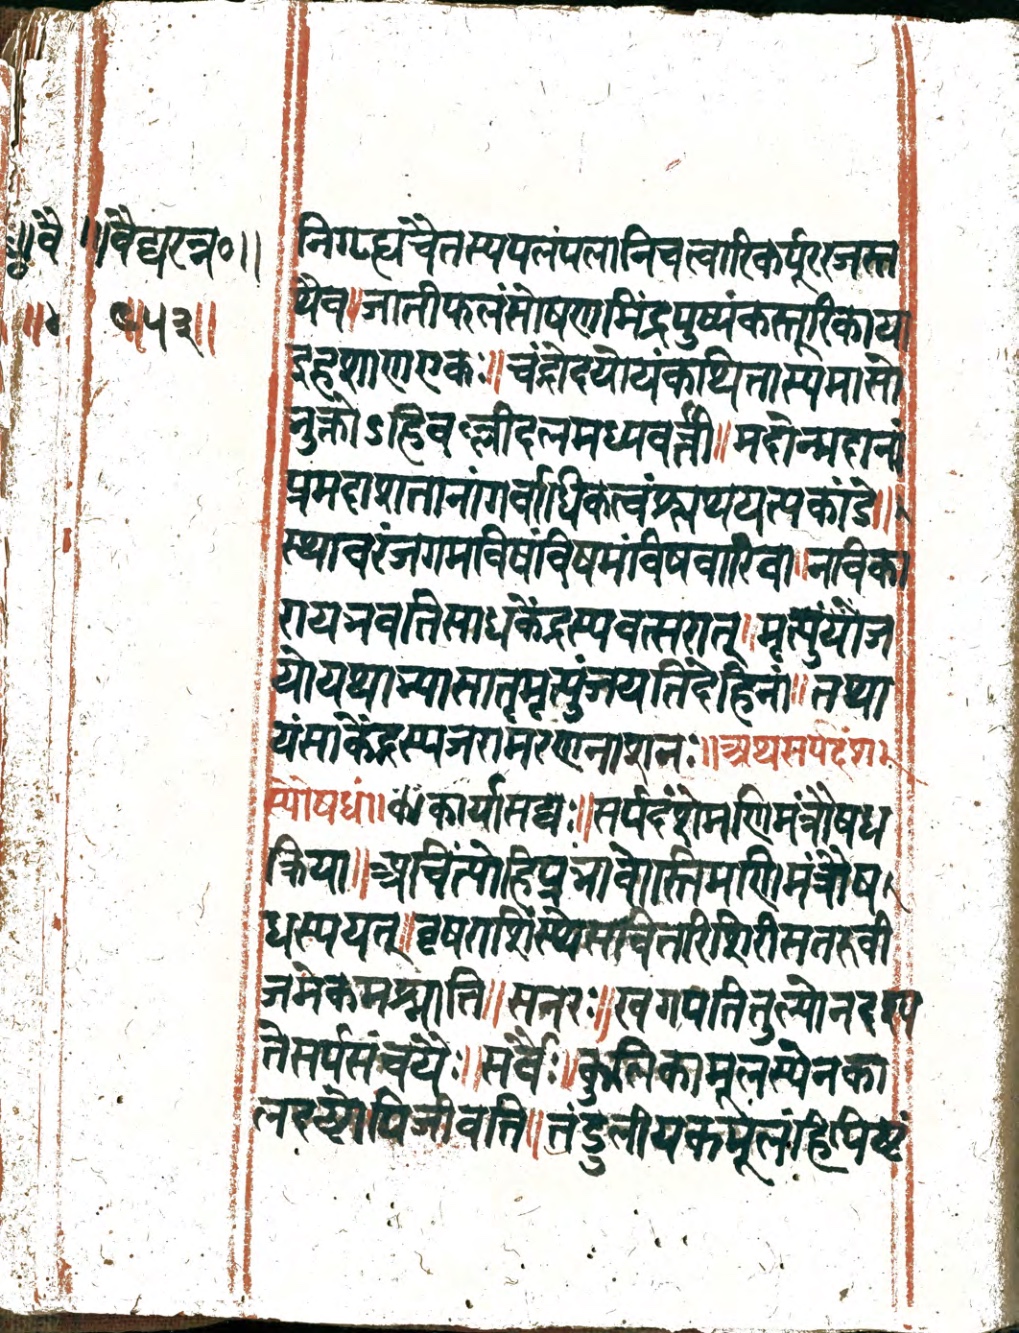 ॥वैद्यरत्न०॥
॥१५३॥
निगृह्यंचैतस्यपलंपलानिचत्वारिकर्पूररजस्त
थैव॥जातीफलंसोषणमिंद्रपुष्पंकस्तूरिकाया
इहशाणएकः॥चंद्रोदयोयंकथितास्यमासो
भुक्तोऽहिवल्लीदलमध्यवर्त्ती॥मदोन्मदानां
प्रमदाशतानांगर्वाधिकत्वंश्लथयत्यकांडे॥
स्थावरंजगमविषंविषमंविषवारिवा॥नविका
रायभवतिसाधकेंद्रस्यवत्सरात्॥मृत्युंयोज
योयथाभ्यासातमृत्युंजयतिदेहिनां॥तथा
यंसाकेंद्रस्यजरामरणनाशनः॥अथसर्पदंश
स्यौषधां॥कार्यासद्यः॥सर्पदंशेमणिमंत्रौषध
क्रिया॥अचिंत्योहिप्रभावोस्तिमणिमंत्रौष
धस्ययत्॥वृषराशिंस्थेसवितरिशिरीसतरुवी
जमेकमश्नाति॥सनरः॥खगपतितुल्योनदश्य
तेसर्पसंचयैः॥सर्वैः॥कुलिकामूलस्येनका
लदष्टोपिजीवति॥तंडुलीयकमूलंहिपिष्टं